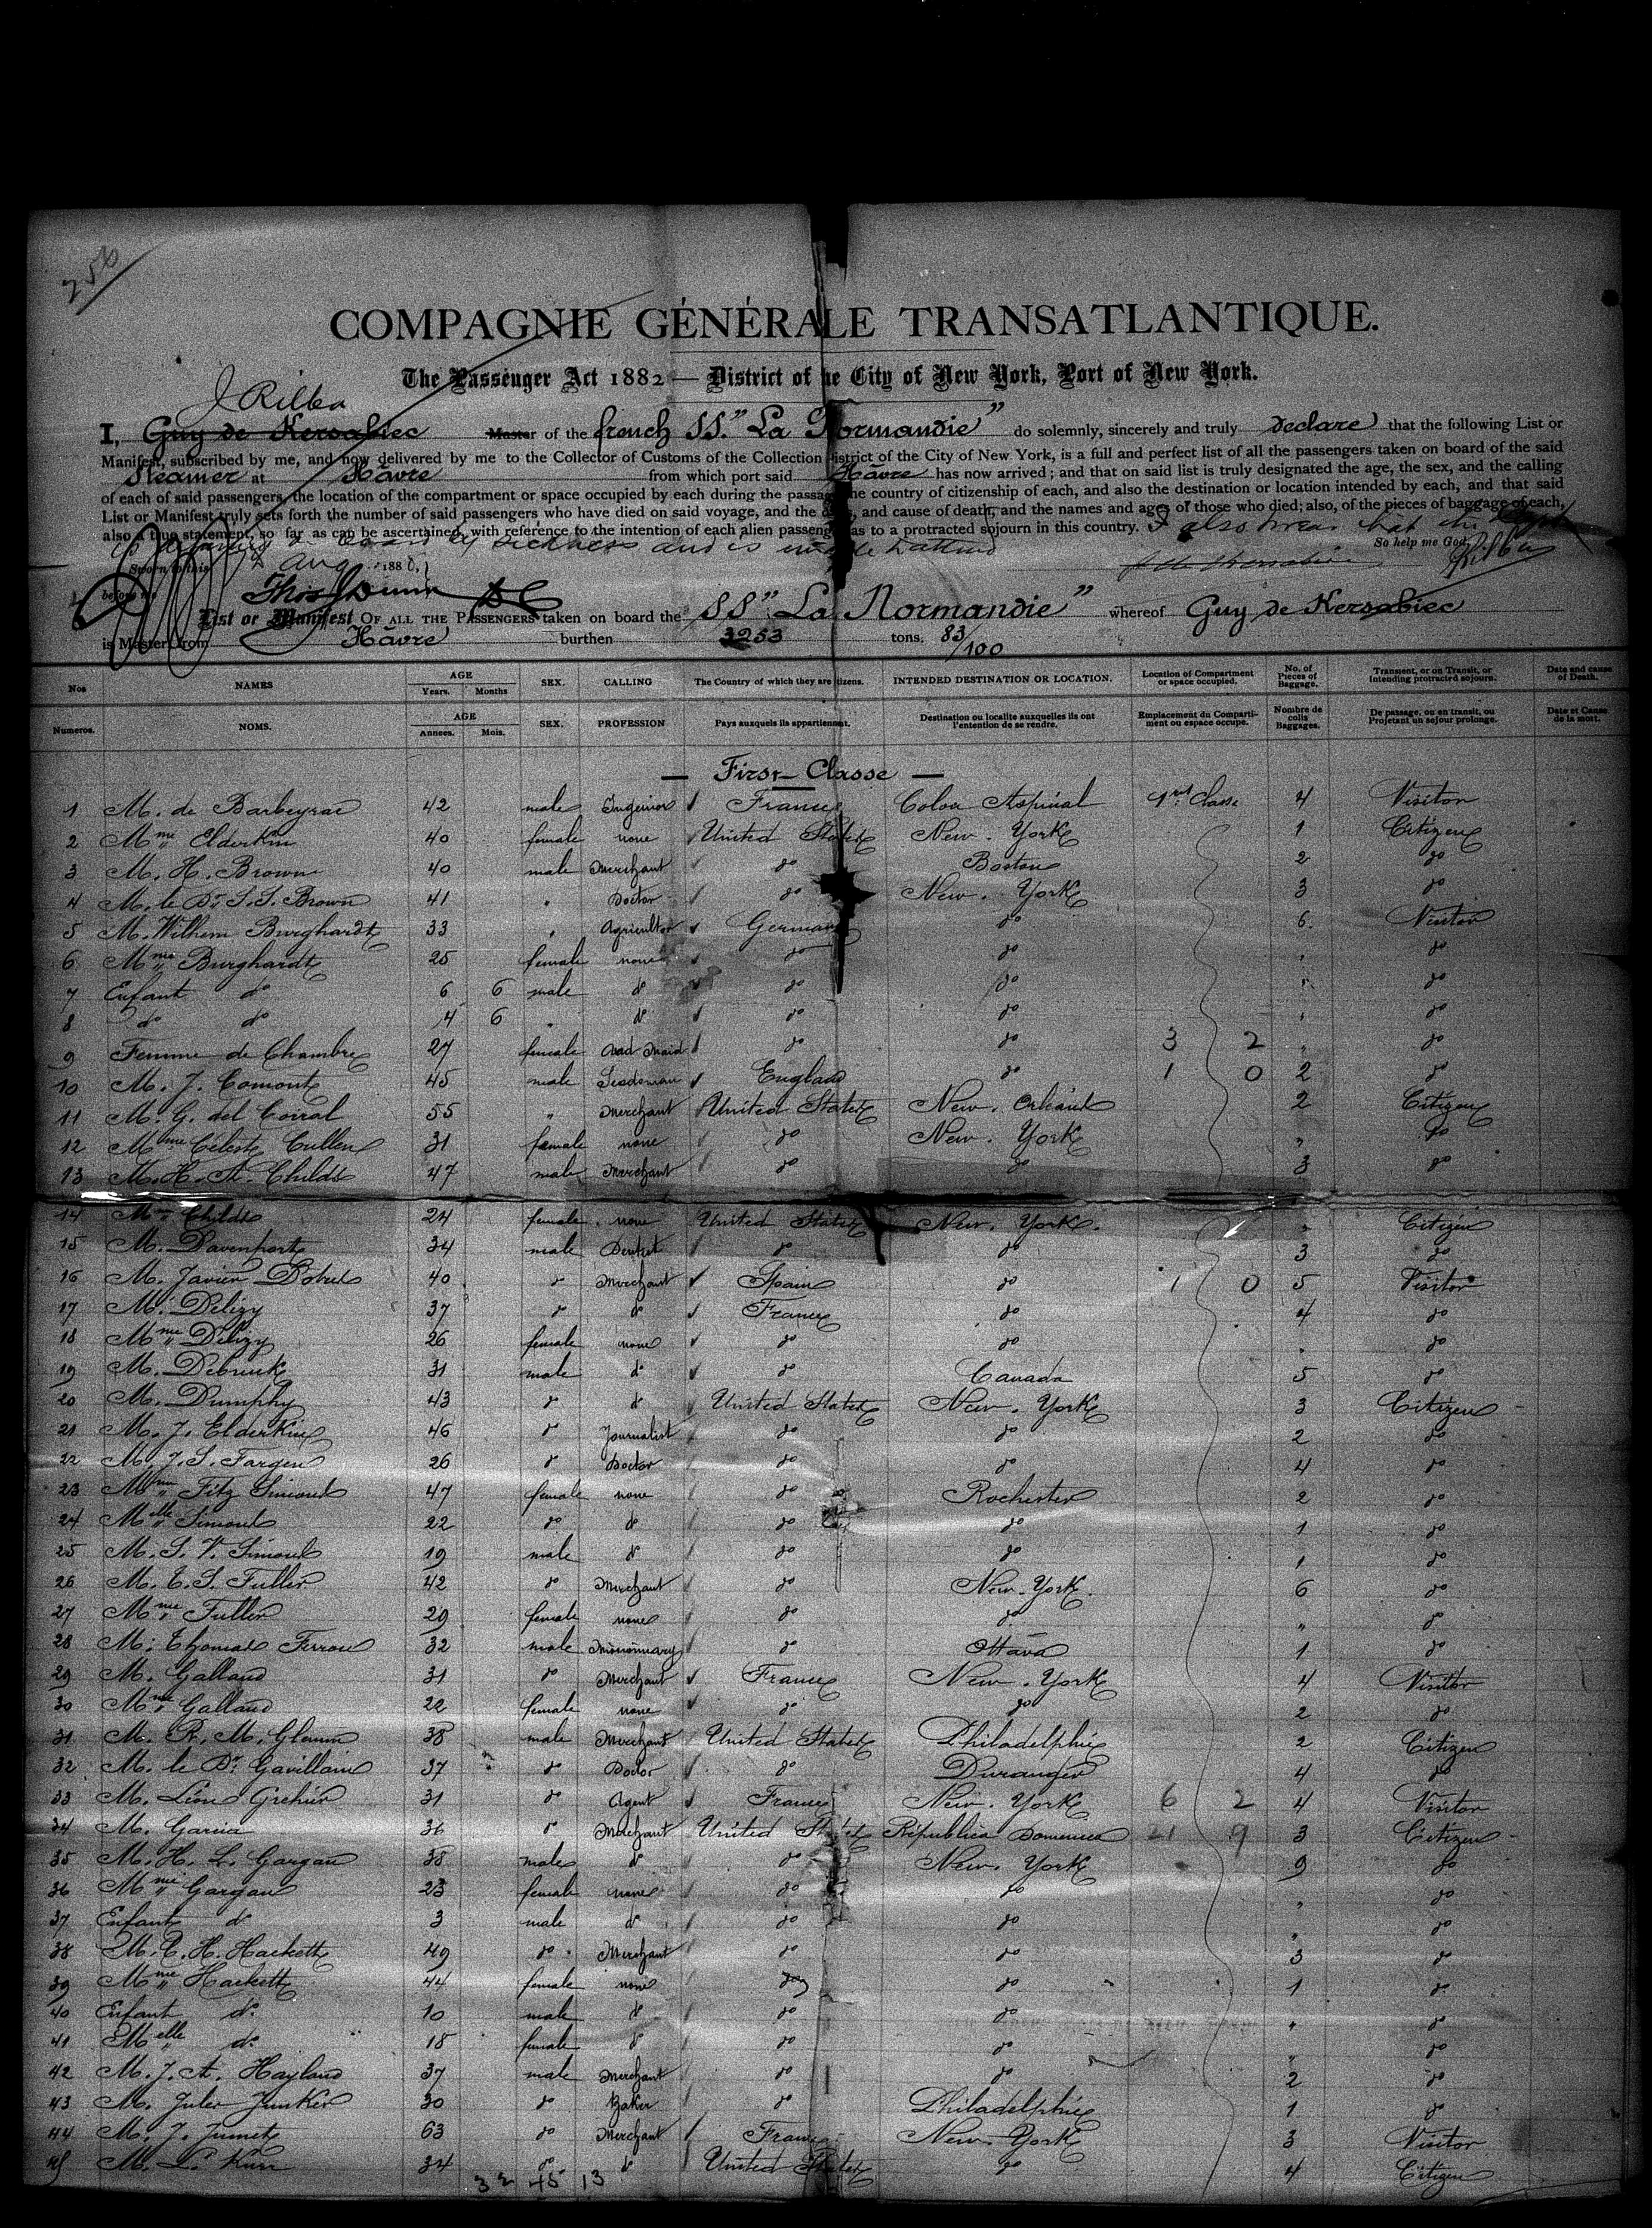 256
COMPAGNIE GÉNÉRALE TRANSATLANTIQUE.
The Passenger Act 1882 — District of he City of New York, Port of New York.
J Rilba
I, Guy de Kersabiec Master of the french SS." La Normandie" do solemnly, sincerely and truly declare that the following List or
Manifest, subscribed by me, and now delivered by me to the Collector of Customs of the Collection district of the City of New York, is a full and perfect list of all the passengers taken on board of the said
Steamer at Hâvre from which port said Hâvre has now arrived; and that on said list is truly designated the age, the sex, and the calling
of each of said passengers, the location of the compartment or space occupied by each during the passage the country of citizenship of each, and also the destination or location intended by each, and that said
List or Manifest truly sets forth the number of said passengers who have died on said voyage, and the and cause of death, and the names and ages of those who died; also, of the pieces of baggage of each,
also a true statement, so far as can be ascertained, with reference to the intention of each alien passenger as to a protracted sojourn in this country. I also swear that the
by sickness and is unable to attend So help me God,
Sworn to this Aug 188 Rilba
before me Thos Dunn
List or Manifest OF ALL THE PASSENGERS taken on board the SS" La Normandie" whereof Guy de Kersabiec
is Master, from Hâvre burthen 3253 tons. 83/100
Nos NAMES AGE Years. Months SEX. CALLING The Country of which they are tizens. INTENDED DESTINATION OR LOCATION. Location of Compartment or space occupied. No. of Pieces of Baggage. Transient, or on Transit, or intending protracted sojourn. Date and cause of Death.
Numeros. NOMS. AGE Annees. Mois. SEX. PROFESSION Pays auxquels ils appartiennent. Destination ou localite auxquelles ils ont l'entention de se rendre. Emplacement du Compartiment ou espace occupe. Nombre de colis Baggages. De passage, ou en transit, ou Projetant un sejour prolonge. Date et Cause de la mort.
— First Classe —
1 M. de Barbeyrac 42 male Ingenior France Colon Aspinal 1rst Classe 4 Visitor
2 Mme Elderkin 40 female none United States New. York 1 Citizen
3 M. H. Brown 40 male Merchant do Boston 2 do
4 M. le Dr. S. S. Brown 41 " Doctor do New. York 3 do
5 M. Wilhem Burghardt 33 " Agricultor German do 6 Visitor
6 Mme Burghardt 25 female none do do " do
7 Enfant do 6 6 male do do do " do
8 do do 4 6 " do do do " do
9 Femme de Chambre 27 female do do 3 2 " do
10 M. J. Comont 45 male England do 1 0 2 do
11 M. G. del Corral 55 " Merchant United States New. Orleans 2 Citizen
12 Mme Celeste Cullen 31 female none do New. York " do
13 M. H. A. Childs 47 male Merchant do do 3 do
14 Mme Childs 24 female none United States New. York. " Citizen
15 M. Davenport 34 male Dentist do do 3 do
16 M. Javier 40 do Merchant Spain do 1 0 5 Visitor
17 M. Delizy 37 do do France do 4 do
18 Mme Delizy 26 female none do do " do
19 M. 31 male do do Canada 5 do
20 M. Dumphy 43 do do United States New. York 3 Citizen
21 M. J. Elderkin 46 do Journalist do do 2 do
22 M. J. S. Fargen 26 do Doctor do do 4 do
23 Mme Fitz Simons 47 female none do Rochester 2 do
24 Melle Simons 22 do do do do 1 do
25 M. S. V. Simons 19 male do do do 1 do
26 M. E. S. Fuller 42 do Merchant do New. York. 6 do
27 Mme Fuller 29 female none do do " do
28 M. Thomas 32 male Missionnary do Ottava 1 do
29 M. Galland 31 do Merchant France New. York 4 Visitor
30 Mme Galland 22 female none do do 2 do
31 M. R. M. 38 male Merchant United States Philadelphie 2 Citizen
32 M. le Dr. Gavillain 37 do Doctor do 4 do
33 M. Léon Grehier 31 do Agent France New. York 6 2 4 Visitor
34 M. Garcia 36 do Merchant United States Républica 21 9 3 Citizen
35 M. H. L. Gargan 38 male do do New. York 9 do
36 Mme Gargan 23 female none do do " do
37 Enfant do 3 male do do do " do
38 M. C. H. Hackett 49 do Merchant do do 3 do
39 Mme Hackett 44 female none do do 1 do
40 Enfant do 10 male do do do " do
41 Melle do 18 female do do do " do
42 M. J. A. Hayland 37 male Merchant do do 2 do
43 M. Jules Junker 30 do Baker do Philadelphie 1 do
44 M. J. 63 do Merchant France New. York 3 Visitor
45 M. L. 34 do do United States do 4 Citizen
32 45 13